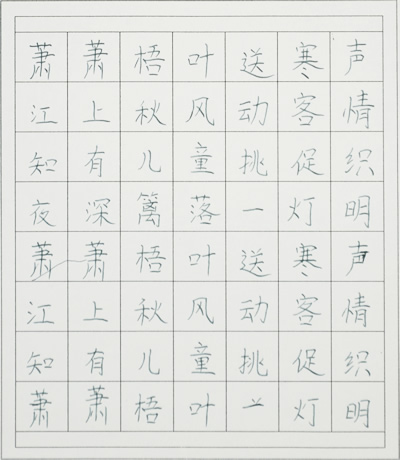 萧萧梧叶送寒声
江上秋风动客情
知有儿童挑促织
夜深篱落一灯明
萧萧梧叶送寒声
江上秋风动客情
知有儿童挑促织
萧萧梧叶一灯明